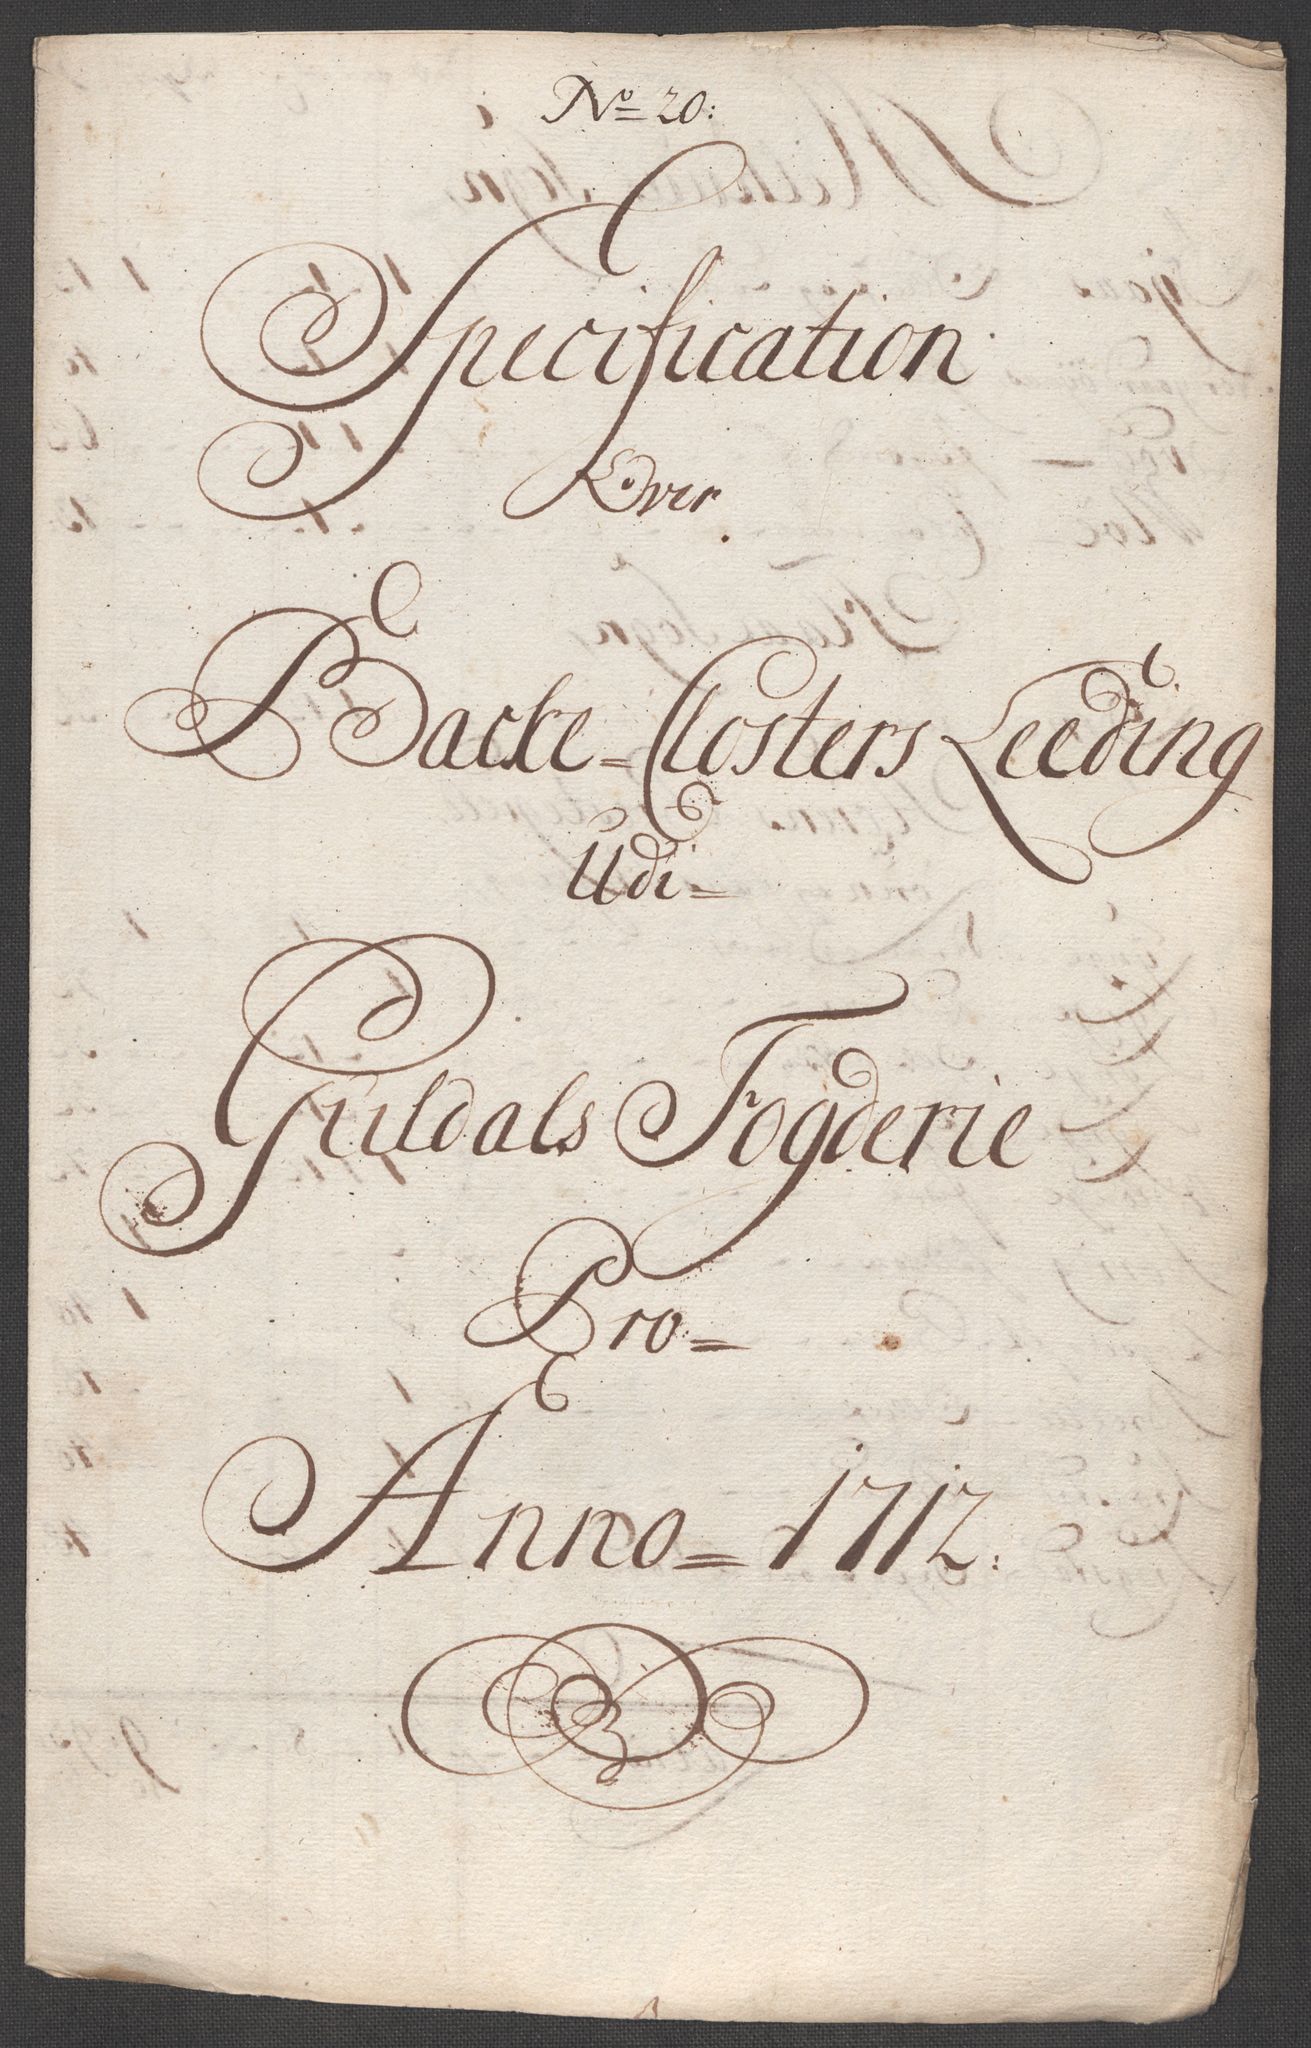 No 20:
Specification
Over
Backe-Closters Leeding
Udi-
Guldals Fogderie
Pro-
Anno-1712.